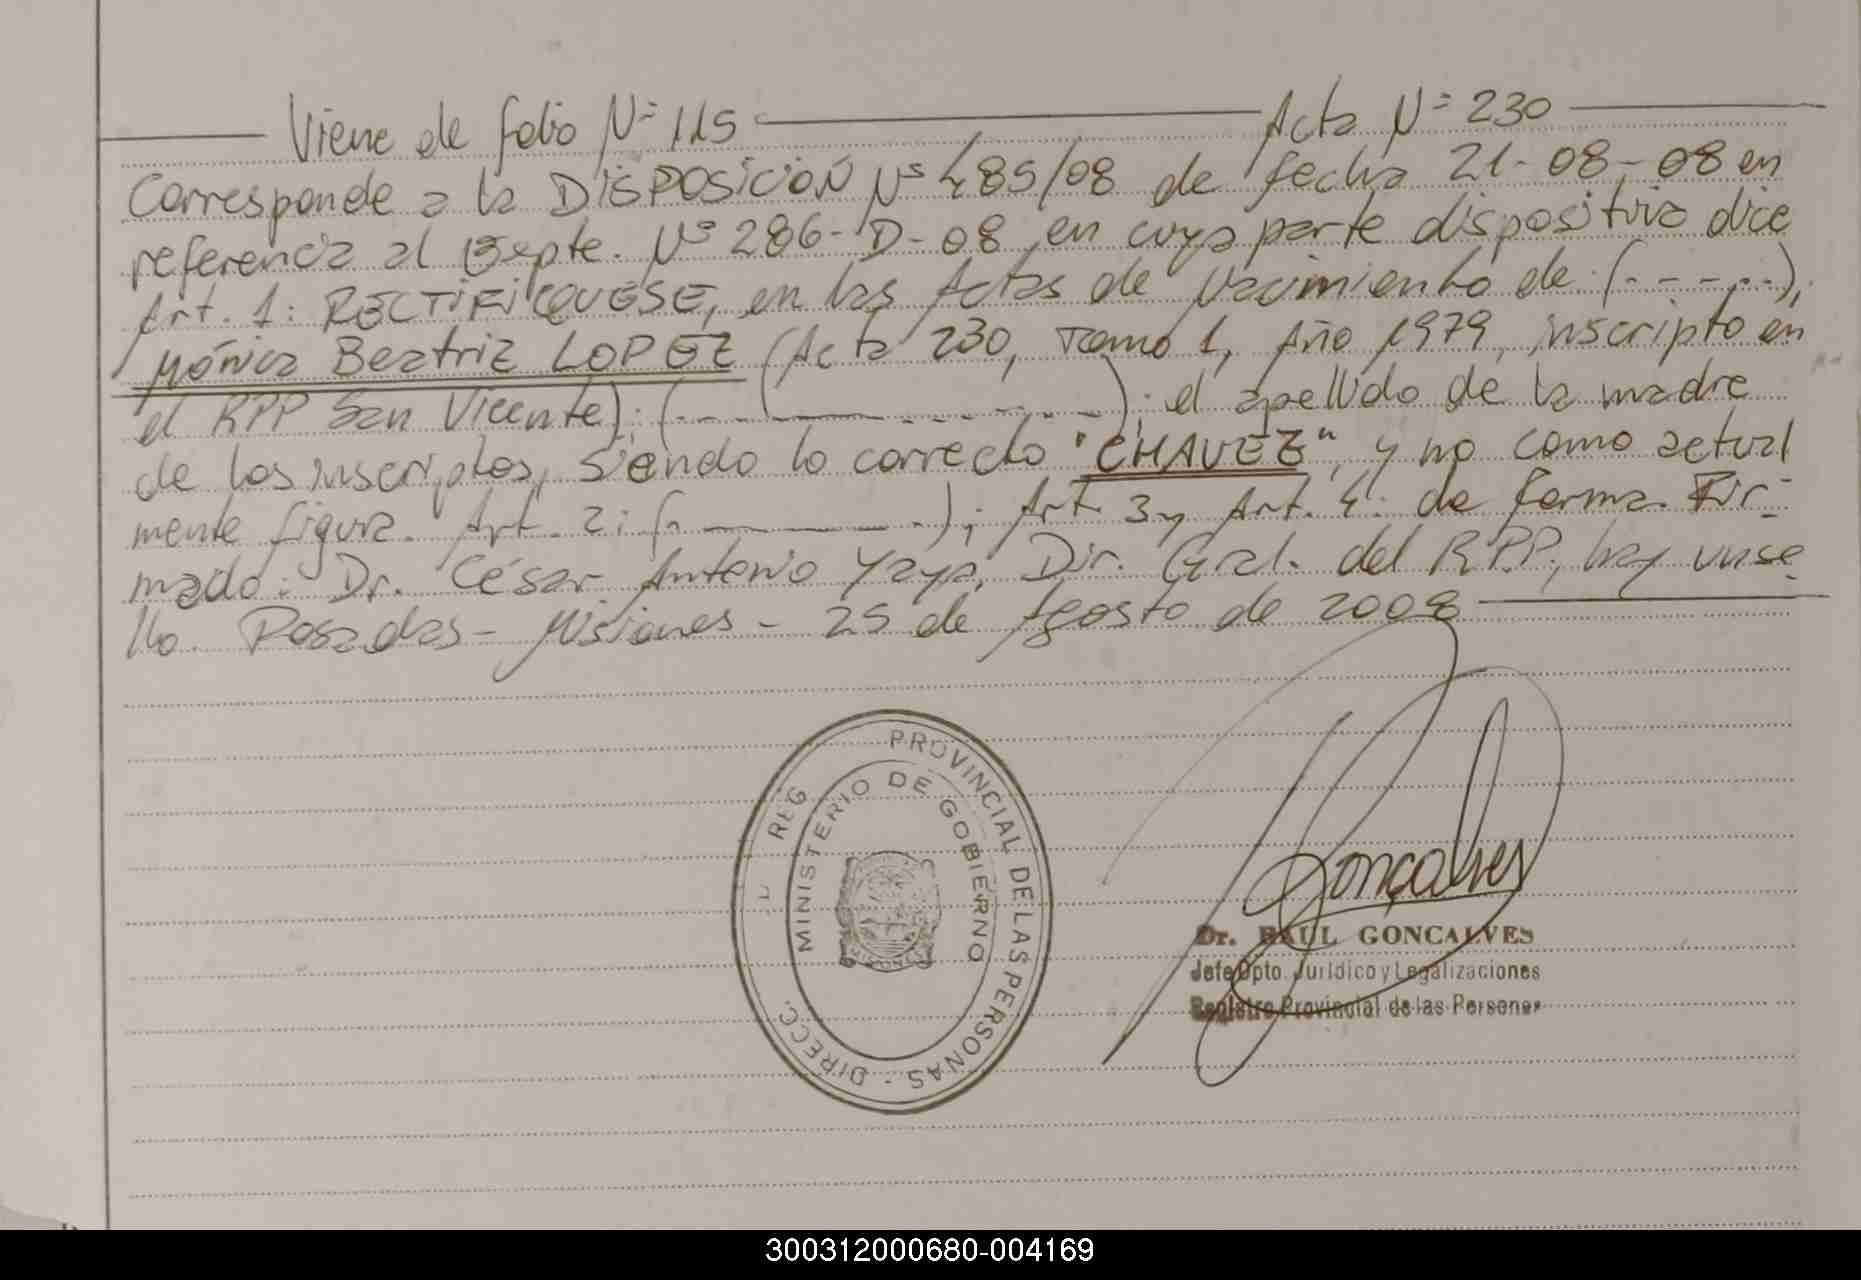 Viene de folio Nº 115 Acta Nº 230
Corresponde a la DISPOSICIÓN Nº 485/08 de fecha 21-08-08 en
referencia al Expte. Nº 286-D-08, en cuya parte dispositiva dice
Art. 1: RECTIFIQUESE, en las Actas de Nacimiento de (- - - - -),
Mónica Beatriz LOPEZ (Acta 230, Tomo 1, Año 1979, inscripto en
el RPP San Vicente); (- - - - - - - -); el apellido de la madre
de los inscriptos, siendo lo correcto "CHAVEZ", y no como actual
mente figura. Art. 2: (- - - - -); Art. 3 y Art. 4: de forma. Fir-
mado: Dr. César Antonio Yaya, Dir. Gral. del RPP, hay un se
llo. Posadas - Misiones - 25 de Agosto de 2008
PROVINCIAL DE LAS PERSONAS - DIRECC. REG
MINISTERIO DE GOBIERNO
MISIONES
Gonçalves
Dr. RAUL GONCALVES
Jefe Dpto. Jurídico y Legalizaciones
Registro Provincial de las Personas
300312000680-004169